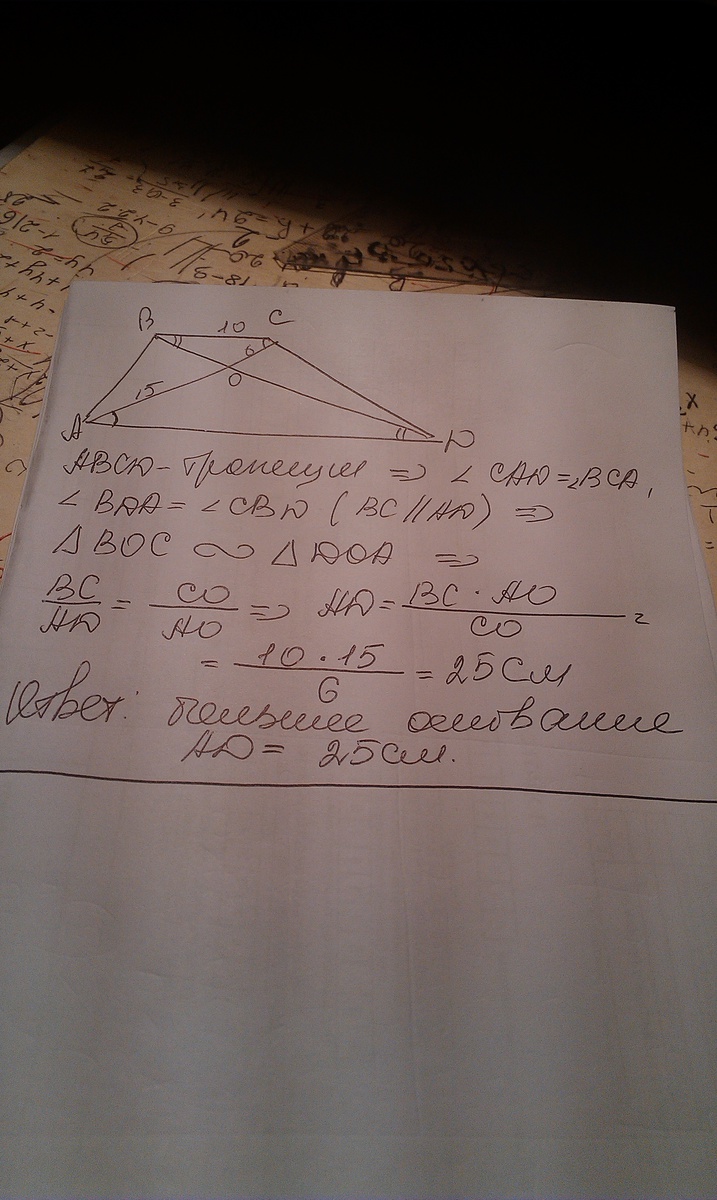 B 10 C
6
15 O
A D
ABCD - трапеция ⇒ ∠ CAD = ∠BCA,
∠ BDA = ∠ CBD ( BC // AD ) ⇒
△ BOC ∾ △ DOA ⇒
BC/AD = CO/AO ⇒ AD = BC · AO/CO =
= 10 · 15/6 = 25 см
Ответ: большее основание
AD = 25 см.